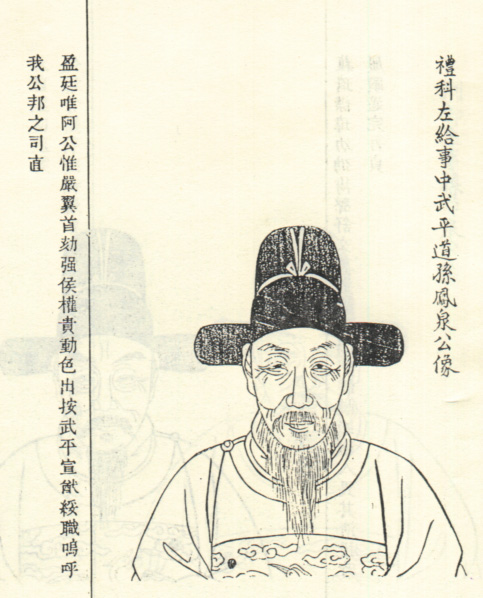 禮科左給事中武平道孫鳳泉公像
盈廷唯阿公惟嚴翼首劾强侯權貴動色出按武平宣猷綏職嗚呼
我公邦之司直